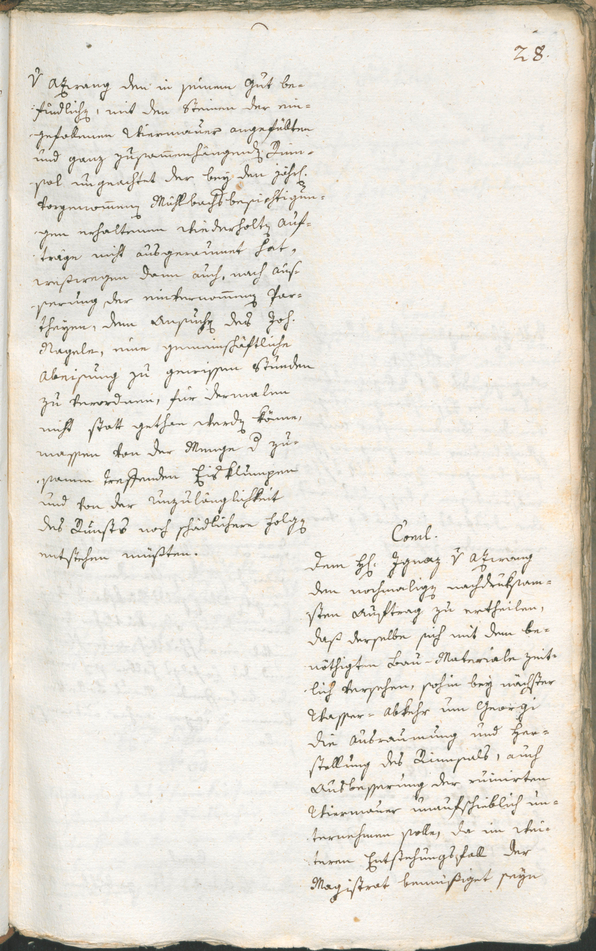 28.
V Atzwang den in seinem Gut be-
findliche, mit den Steinen der ein-
gefallenen Wiermauer angefüllten
und ganz zusammenhängende Rinn-
sal ungeachtet der bey den jährl.
vorgenommene Mühlbachsbesichtigun-
gen erhaltenen wiederholte Auf-
träge nicht ausgeraumet hat,
weßwegen dann auch, nach Aus-
serung der einvernommene Par-
theyen, dem Ansuche des Joh.
Nagele, eine gemeinschäftliche
Abeisung zu gewissen Stunden
zu verordnen, für dermalen
nicht statt gethan werde könne,
massen von der Menge d zu-
samm treffenden Eisklumpen
und von der Unzulänglichkeit
des Runsts noch schädlichere Folge
entstehen müßten.
Concl.
Dem H. Ignaz V Atzwang
den nochmalige nachdruksam-
sten Auftrag zu ertheilen,
daß derselbe sich mit dem be-
nöthigten Bau-Materiale zeit-
lich versehen, sohin bey nächster
Wasser-Abkehr um Georgi
die Ausraumung und Her-
stellung des Rinnsals, auch
Ausbesserung der ruinirten
Wiermauer unaufschieblich un-
ternehmen solle, da im wei-
teren Entstehungsfall der
Magistrat bemüßiget seyn